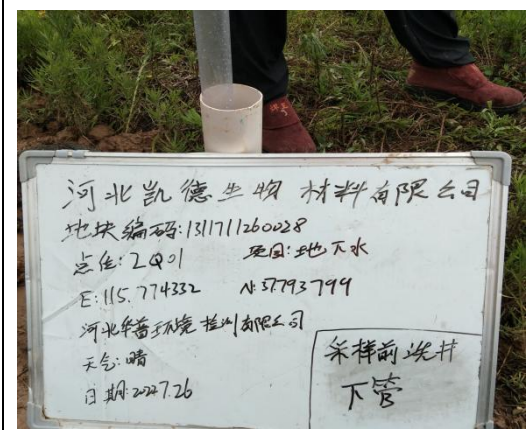 河北凯德生物材料有限公司
地块编码:1311711260028
点位:2Q01 项目:地下水
E:115.774332 N:37.793799
河北华普环境检测有限公司
天气:晴
日期:2022.7.26
采样前洗井
下管